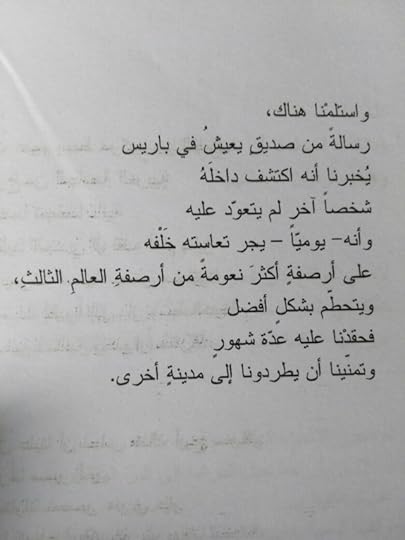 واستلمْنا هناك،
رسالةً من صديقٍ يعيشُ في باريس
يُخبرنا أنه اكتشف داخلَهُ
شخصاً آخر لم يتعوّد عليه
وأنه- يوميّاً – يجر تعاسته خَلْفه
على أرصفةٍ أكثرَ نعومةً من أرصفةِ العالمِ الثالثِ،
ويتحطّم بشكل أفضل
فحقدْنا عليه عدّة شهورٍ
وتمنّينا أن يطردونا إلى مدينةٍ أخرى.